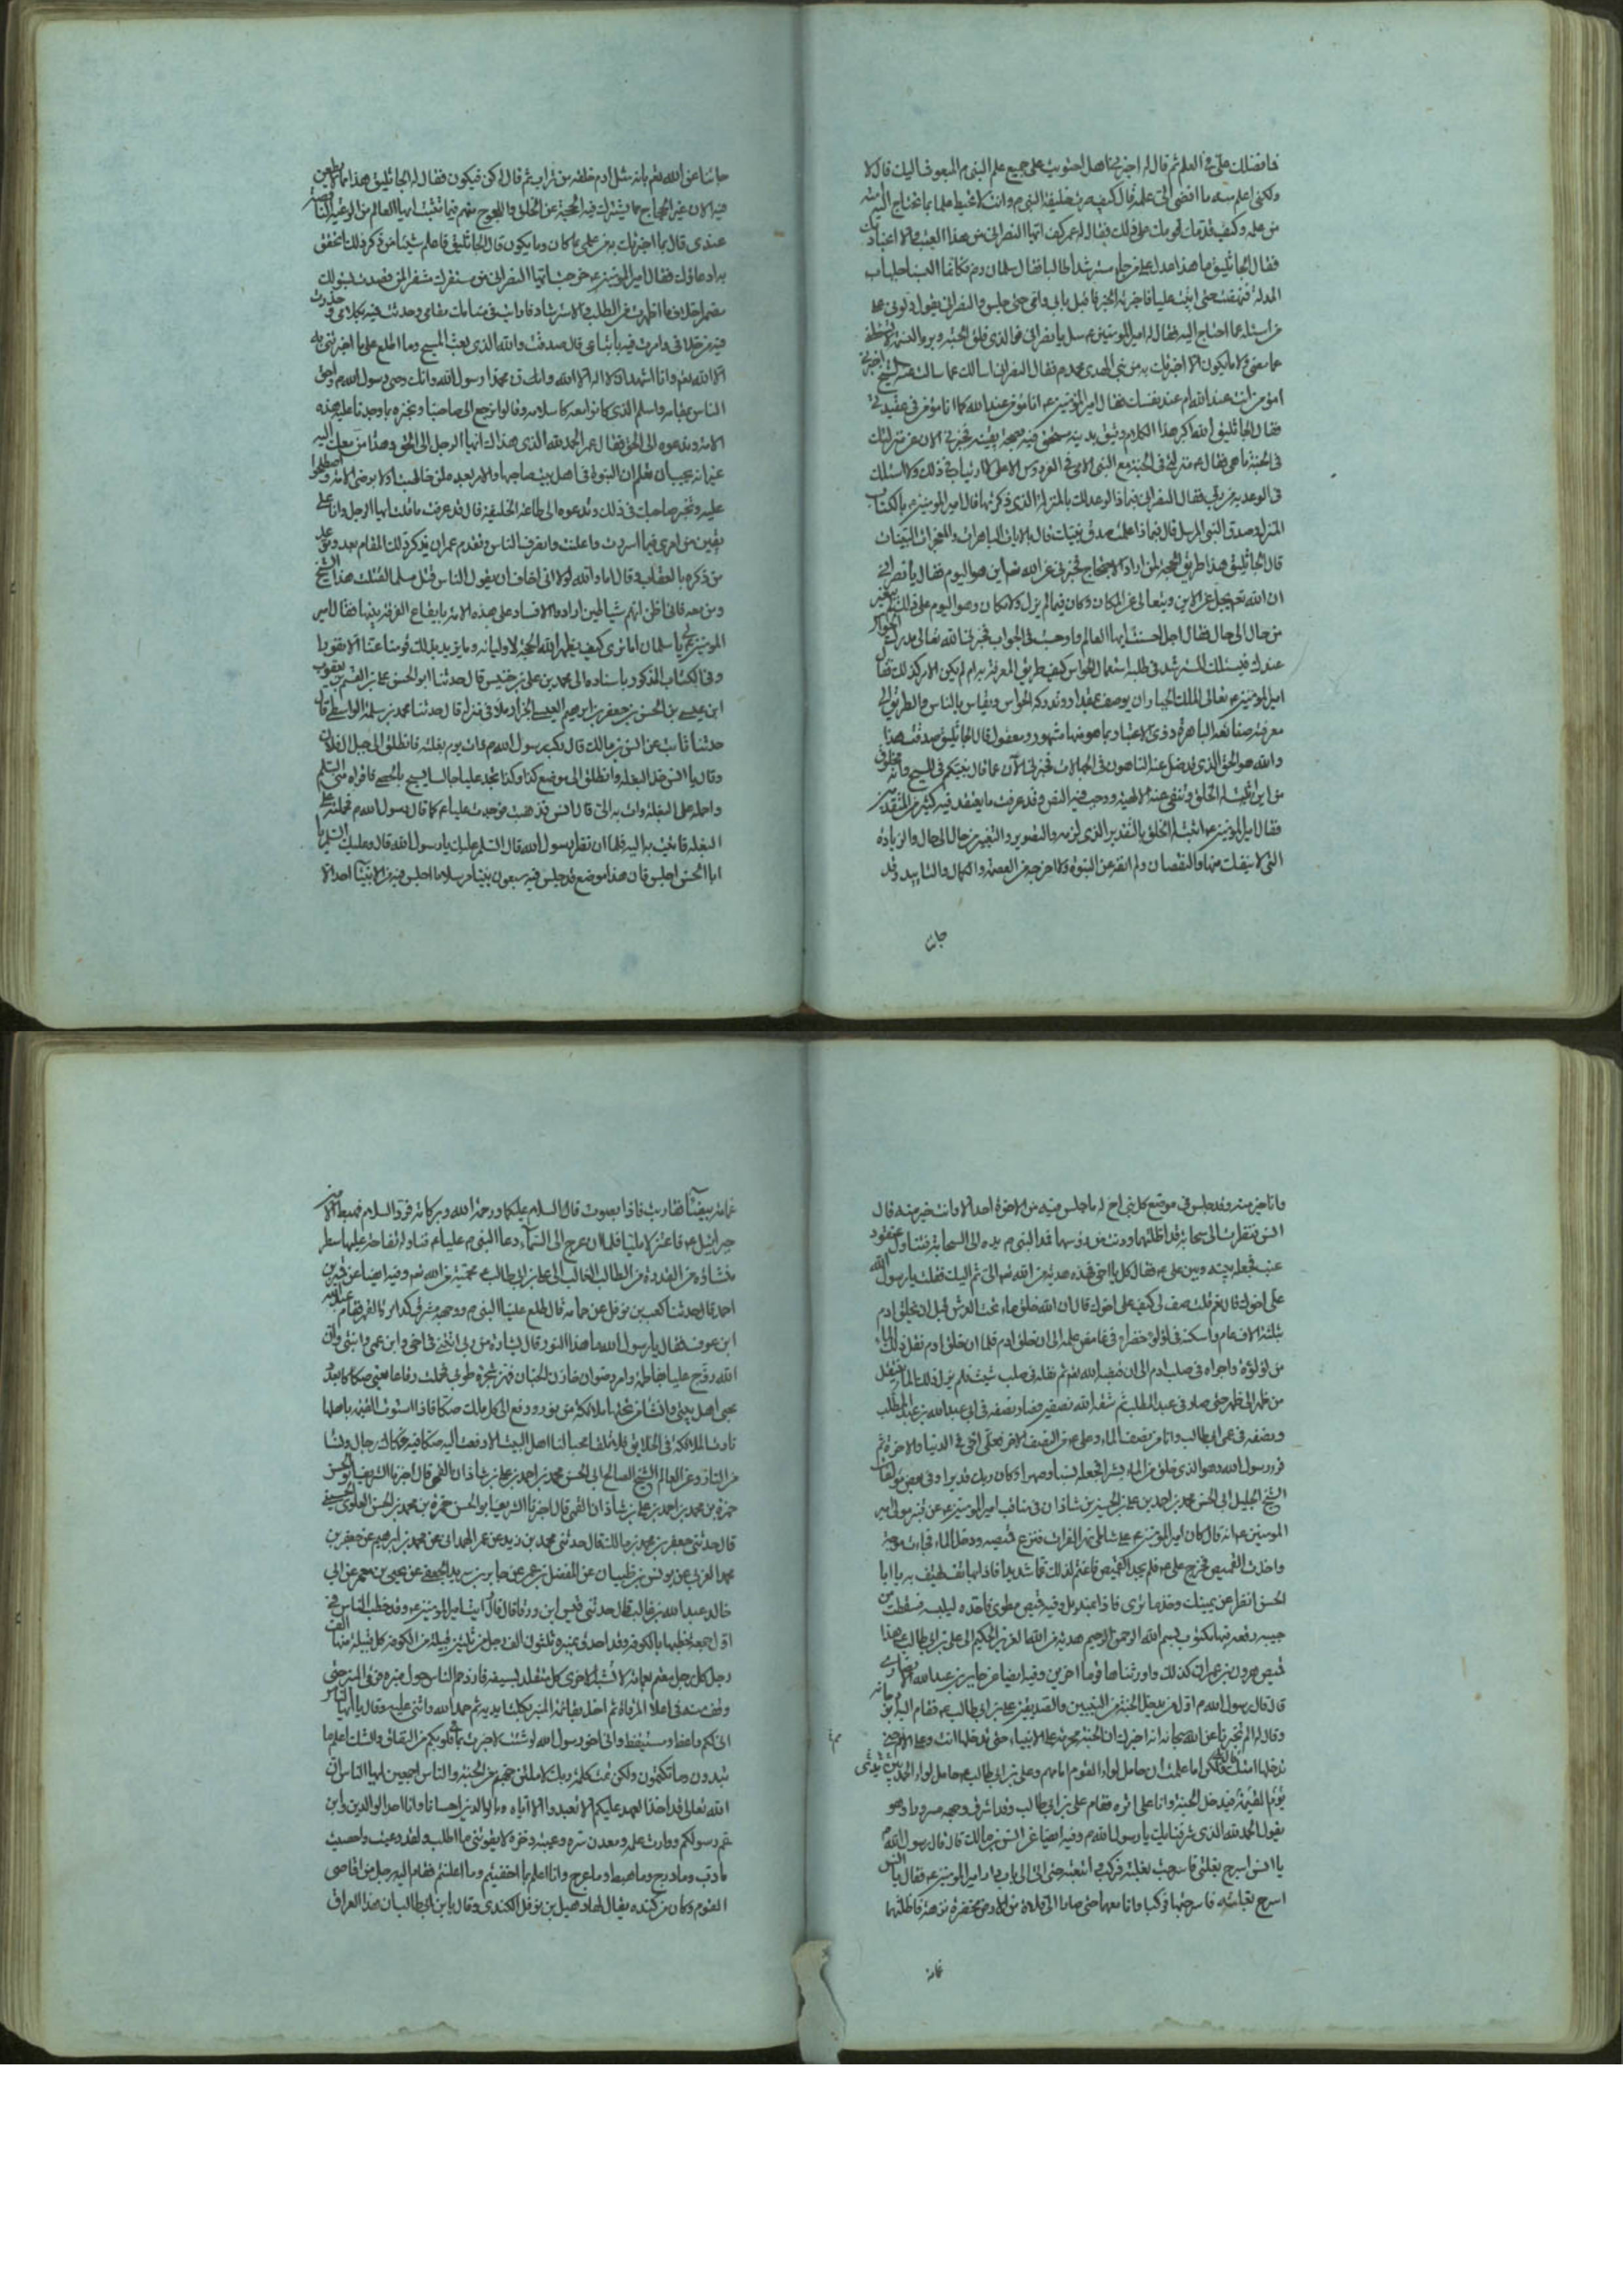 فما فضلك علي في العلم ثم قال له اخبرني هل احتويت على جميع علم النبي المبعوث اليك قال لا
ولكني اعلم منه ما افضى الي علمه قال كيف صرت خليفة النبي م وانت لا تحيط علما بما تحتاج اليه امته
من علمه وكيف قدمك قومك على ذلك فقال له عمر كف ايها النصراني عن هذا العبث والا اعناك
فقال الجاثليق ما هذا عدل على من جاء مسترشدا طالبا فقال سلمان ره فكانما البست جلباب
المذلة فنهضت حتى اتيت عليا فاخبرته الخبر فاقبل بابي وامي حتى جلس والنصراني يقول دلوني على
من اسئله عما احتاج اليه فقال له امير المؤمنين ع سل يا نصراني فوالذي فلق الحبة وبرء النسمة
عما مضى ولا ما يكون الا اخبرتك به عن نبي الهدى محمد م فقال النصراني اسالك عما سالت هذا الشيخ
امؤمن انت عند الله ام عند نفسك فقال امير المؤمنين ع انا مؤمن عند الله كما انا مؤمن في عقيدتي
فقال الجاثليق الله اكبر هذا الكلام وثيق بدينه متحقق فيه بصحة يقينه فخبرني الان عن منزلتك
في الجنة ما هي فقال ع منزلتي في الجنة مع النبي الامي في الفردوس الاعلى لا ارتاب في ذلك ولا اشك
في الوعد به من ربي فقال النصراني فبماذا عرفت الوعد لك بالمنزلة الذي ذكرتها قال امير المؤمنين ع بالكتاب
المنزل وصدق النبي المرسل قال فبماذا علمت صدق نبيك قال بالايات الباهرات والمعجزات البينات
قال الجاثليق هذا طريق الحجة لمن اراد الاحتجاج خبرني عن الله تعم اين هو اليوم فقال يا نصراني
ان الله تعم يجل عن الاين ويتعالى عن المكان وكان فيما لم يزل ولا مكان وهو اليوم على ذلك لم يتغير
من حال الى حال فقال اجل احسنت ايها العالم واوجزت في الجواب فخبرني الله تعالى مدرك بالحواس
عندك فيسلك المسترشد في طلبه استعمال الحواس ام كيف طريق المعرفة به ام لم يكون الامر كذلك فقال
امير المؤمنين ع تعالى الملك الجبار ان يوصف بمقدار او تدركه الحواس ويقاس بالناس والطريق الى
معرفته صنائعه الباهرة ذوي الاعتبار بما هو منها مشهود ومعقول قال الجاثليق صدقت هذا
والله هو الحق الذي قد ضل عنه التائهون في الجهالات فخبرني الآن عما قال نبيكم في المسيح وانه مخلوق
من اين اثبت له الخلق ونفى عنه الالهية واوجب فيه النقص وقد عرفت ما يعتقد فيه كثير من المتقدمين
فقال امير المؤمنين ع اثبت له الخلق بالتقدير الذي لزمه والتصوير والتغير من حال الى حال والزيادة
التي لا ينفك منها والنقصان ولم انف عنه النبوة ولا اخرجته من العصمة والكمال والتاييد وقد
جاءنا
جاءنا عن الله تعم بانه مثل ادم خلقه من تراب ثم قال له كن فيكون فقال له الجاثليق هذا ما لا يطعن
فيه الان غير ان الحجاج مما يشترك فيه الحجة عن الخلق والمحجوج منهم فبما تثبت ايها العالم من الرعية الناقصة
عندي قال بما اخبرتك به من علمي بما كان وما يكون قال الجاثليق فاعلم شيئا من ذكر ذلك اتحقق
به دعواك فقال امير المؤمنين ع خرجت ايها النصراني من مستقرك مستفزا لمن قصدت بسؤالك
مضمرا خلاف ما اظهرت من الطلب والاسترشاد فاريت في منامك مقامي وحدثت فيه بكلامي وحذرت
فيه من خلافي وامرت فيه باتباعي قال صدقت والله الذي بعث المسيح وما اطلع على ما اخبرتني به
الا الله تعم وانا اشهد ان لا اله الا الله وانك محمدا رسول الله وانك وصي رسول الله م واحق
الناس بمقامه واسلم الذي كانوا معه كاسلامه وقالوا نرجع الى صاحبنا ونخبره بما وجدنا عليه هذه
الامر وندعوه الى الحق فقال عمر الحمد لله الذي هداك ايها الرجل الى الحق وهدا من معك اليه
غير انه يجب ان تعلم ان النبوة في اهل بيت صاحبها والامر بعده لمن خاطبت اولا برضى الامة واصطلحوا
عليه وتخبر صاحبك في ذلك وتدعوه الى طاعة الخليفة قال قد عرفت ما قلت ايها الرجل وانا على
يقين من امري فيما اسررت واعلنت وانصرف الناس وتقدم عمر ان يذكر ذلك المقام بعد وتوعد
من ذكره بالعقاب وقال اما والله لولا اني اخاف ان يقول الناس قتل مسلما لقتلت هذا الشيخ
ومن معه فاني اظن انهم شياطين ارادوا الافساد على هذه الامة بايقاع الفرقة بينها فقال امير
المؤمنين ع لي يا سلمان اما ترى كيف يظهر الله الحجة لاوليائه وما يزيد بذلك قومنا عنا الا نفورا
وفي الكتاب المذكور باسناده الى محمد بن علي بن خنيس قال حدثنا ابو الحسن علي بن القسم بن يعقوب
ابن عيسى بن الحسن بن جعفر بن ابراهيم القيسي الخزاز املاء في منزله قال حدثنا محمد بن سلمة الواسطي قال
حدثنا ثابت عن انس بن مالك قال ركب رسول الله م ذات يوم بغلته فانطلق الى جبل ال فلان
وقال يا انس خذ البغلة وانطلق الى موضع كذا وكذا تجد عليا جالسا يسبح بالحصى فاقراه مني السلم
واحمله على البغلة وات به الي قال انس فذهبت فوجدت عليا ع كما قال رسول الله م فحملته على
البغلة فاتيت به اليه فلما ان نظر رسول الله قال السلم عليك يا رسول الله قال وعليك السلم يا
ابا الحسن اجلس فان هذا موضع قد جلس فيه سبعون نبيا مرسلا ما جلس فيه من الانبياء احد الا
وانا خير منه وقد جلس في موضع كل نبي اخ له ما جلس فيه من الاخوة احد الا وانت خير منه قال
انس فنظرت الى سحابة قد اظلتهما ودنت من رؤسهما فمد النبي م يده الى السحابة فتناول عنقود
عنب فجعله بينه وبين علي ع فقال كل يا اخي فهذه هدية من الله تعم الي ثم اليك فقلت يا رسول الله
علي اخوك قال نعم قلت صف لي كيف علي اخوك قال ان الله خلق ماء تحت العرش قبل ان يخلق ادم
بثلثة الاف عام واسكنه في لؤلؤة خضراء في غامض علمه الى ان خلق ادم فلما ان خلق ادم نقل ذلك الماء
من لؤلؤة واجراه في صلب ادم الى ان قبضه الله تعم ثم نقله في صلب شيث فلم يزل ذلك الماء ينتقل
من ظهر الى ظهر حتى صار في عبد المطلب ثم شقه الله نصفين فصار نصفه في ابي عبد الله بن عبد المطلب
ونصفه في عمي ابي طالب وانا من نصف الماء وعلي ع من النصف الاخر فعلي اخي في الدنيا والاخرة ثم
قرء رسول الله وهو الذي خلق من الماء بشرا فجعله نسبا وصهرا وكان ربك قديرا وفي بعض مؤلفات
الشيخ الجليل ابي الحسن محمد بن احمد بن علي بن الحسين بن شاذان في مناقب امير المؤمنين ع عن قنبر مولى امير
المومنين ع انه قال كان امير المؤمنين ع على شاطئ نهر الفرات فنزع قميصه ودخل الماء فجاءت موجة
واخذت القميص فخرج علي ع فلم يجد القميص فاغتم لذلك غما شديدا فاذا بهاتف يهتف به يا ابا
الحسن انظر عن يمينك وخذ ما ترى فاذا بمنديل وفيه قميص مطوي فاخذه ليلبسه فسقطت من
جيبه رقعة فيها مكتوب بسم الله الرحمن الرحيم هدية من الله العزيز الحكيم الى علي بن ابي طالب هذا
قميص هرون بن عمران كذلك واورثناها قوما اخرين وفيه ايضا عن جابر بن عبد الله الانصاري
قال قال رسول الله م اول من يدخل الجنة من النبيين والصديقين علي بن ابي طالب ع فقام اليه ابو دجانه
وقال له الم تخبرنا عن الله سبحانه انه اخبرك ان الجنة محرمة على الانبياء حتى تدخلها انت وعلى الامم حتى
تدخلها امتك قال بلى ولكن اما علمت ان حامل لواء القوم امامهم وعلي بن ابي طالب ع حامل لواء الحمد بين يدي
يوم القيمة يدخل الجنة وانا على اثره فقام علي بن ابي طالب وقد اشرق وجهه سرورا وهو
يقول الحمد لله الذي شرفنا بك يا رسول الله م وفيه ايضا عن انس بن مالك قال قال رسول الله م
يا انس اسرج بغلتي فاسرجت بغلته فركب اتبعته حتى اتى الى باب دار امير المؤمنين ع فقال يا انس
اسرج بغلته فاسرجتها فركبا وانا معهما حتى صارا الى فلاة من الارض مخضرة نزهة فاظلتهما
غمامة
غمامة بيضاء فتقاربت فاذا بصوت قال السلام عليكما ورحمة الله وبركاته فردا السلام فهبط الامين
جبرائيل ع فاعتزلا مليا فلما ان عرج الى السماء دعا النبي م عليا ع فناوله تفاحة عليها سطر
منشاؤه من القدرة من الطالب الغالب الى علي بن ابي طالب ع تحية من الله تعم وفيه ايضا عن
احمد قال حدثنا كعب بن نوفل عن حمامة قال طلع علينا النبي م ووجهه مشرق كدائرة القمر فقام عبد الرحمن
ابن عوف فقال يا رسول الله ما هذا النور قال بشارة من ربي اتتني في اخي وابن عمي وابنتي وان
الله زوج عليا بفاطمة وامر رضوان خازن الجنان فهز شجرة طوبى فحملت رقاعا يعني صكاكا بعدد
محبي اهل بيتي وانشا من تحتها ملائكة من نور ودفع الى كل ملك صكا فاذا استوت القيمة باهلها
نادت الملائكة في الخلايق فلا تلقى محبا لنا اهل البيت الا دفعت اليه صكا فيه فكاك رجال ونسا
من النار وعن العالم الشيخ الصالح ابي الحسن محمد بن احمد بن علي بن شاذان القمي قال اخبرنا الشريف ابو الحسن
حمزة بن محمد بن احمد بن علي بن شاذان القمي قال اخبرنا الشريف ابو الحسن حمزة بن محمد بن الحسن العلوي الحسيني
قال حدثني جعفر بن محمد بن مالك قال حدثني محمد بن زيد بن عمر الهمداني عن محمد بن ابراهيم عن جعفر بن
محمد عن يونس بن ظبيان عن المفضل بن عمر عن جابر بن يزيد الجعفي عن يحيى بن معمر عن ابي
خالد عبد الله بن غالب قال حدثني قيس ابن ورقا قال رايت امير المؤمنين ع وقد خطب الناس في
اول جمعة خطبها بالكوفة وقد احدق بمنبره ثلثون الف رجل من ثلثين قبيلة من الكوفة كل قبيلة منها الف
رجل كل رجل معتم بعمامة لا تشبه الاخرى كل متقلد بسيفه فازدحم الناس حول منبره فرقى المنبر حتى
وقف منه في اعلا المرقاة ثم اخذ بقائمة المنبر بكلتا يديه ثم حمد الله واثنى عليه وقال يا ايها الناس
اني لكم واعظ او مستيقظ واني اخو رسول الله لو شئت لاخبرت بما في قلوبكم من النفاق والشك اعلم ما
تبدون وما تكتمون ولكن تمت كلمة ربك لاملئن جهنم من الجنة والناس اجمعين ايها الناس ان
الله تعالى قد اخذ العهد عليكم الا تعبدوا الا اياه وبالوالدين احسانا وانا احد الوالدين وابن
عم رسولكم ووارث علمه ومعدن سره وعيبة ذخره لا يفوتني ما اطلب ولقد وعيت واحصيت
ما دب وما درج وما هبط وما عرج وانا اعلم بما اخفيتم وما اعلنتم فقام اليه رجل من اقاصي
القوم وكان من كنده يقال لهاد هيل بن نوفل الكندي وقال يا بن ابي طالب ان هذا العراق